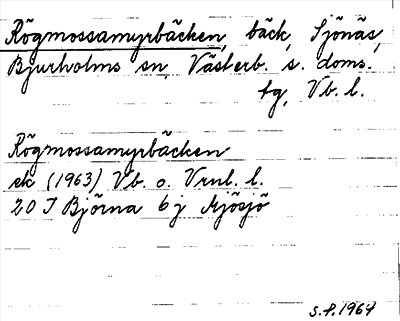 Rögmossamyrbäcken, bäck, Sjönäs,
Bjurholms sn, Västerb. s. doms.
tg, Vb. l.
Rögmossamyrbäcken
ek (1963) Vb. o. Vrnl. l.
20 J Björna 6 j Mjösjö
S.P. 1964